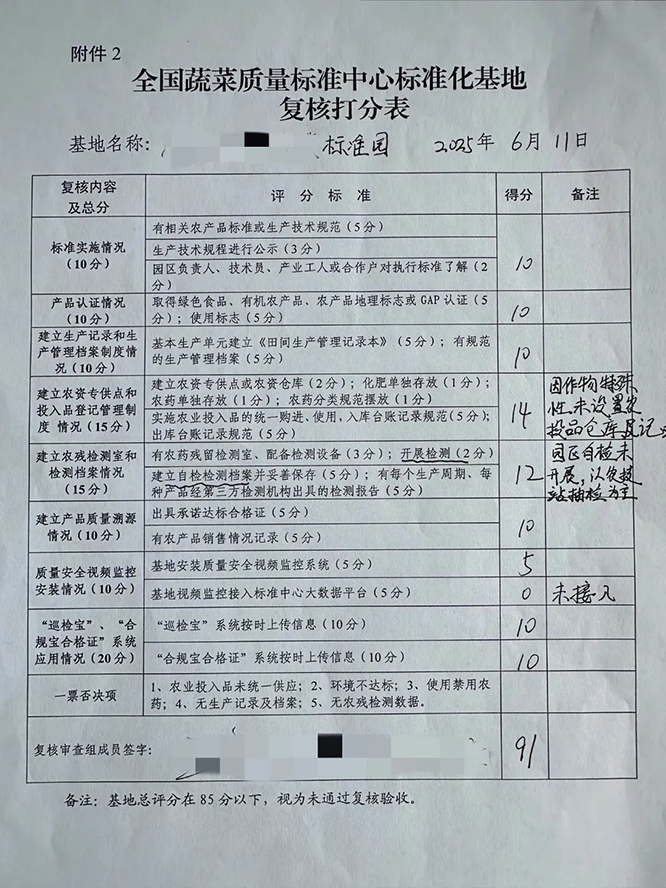 附件 2
全国蔬菜质量标准中心标准化基地
复核打分表
基地名称：标准园 2025年 6月 11日
复核内容
及总分
评 分 标 准
得分
备注
标准实施情况
（10分）
有相关农产品标准或生产技术规范（5 分）
生产技术规程进行公示（3 分）
园区负责人、技术员、产业工人或合作户对执行标准了解（2
分）
10
产品认证情况
（10 分）
取得绿色食品、有机农产品、农产品地理标志或 GAP 认证（5
分）；使用标志（5 分）
10
建立生产记录和生
产管理档案制度情
况（10 分）
基本生产单元建立《田间生产管理记录本》（5 分）；有规范
的生产管理档案（5 分）
10
建立农资专供点和
投入品登记管理制
度 情况（15 分）
建立农资专供点或农资仓库（2 分）；化肥单独存放（1 分）；
农药单独存放（1 分）；农药分类规范摆放（1 分）
实施农业投入品的统一购进、使用，入库台账记录规范（5分）；
出库台账记录规范（5 分）
14
因作物特殊
性,未设置农
投品仓库及记录
建立农残检测室和
检测档案情况
（15 分）
有农药残留检测室、配备检测设备（3 分）；开展检测（2 分）
建立自检检测档案并妥善保存（5 分）；有每个生产周期、每
种产品经第三方检测机构出具的检测报告（5 分）
12
园区自检未
开展,以农技
站抽检为主
建立产品质量溯源
情况（10 分）
出具承诺达标合格证（5 分）
有农产品销售情况记录（5 分）
10
质量安全视频监控
安装情况（10 分）
基地安装质量安全视频监控系统（5 分）
5
基地视频监控接入标准中心大数据平台（5 分）
0
未接入
“巡检宝”、“合
规宝合格证”系统
应用情况（20 分）
“巡检宝”系统按时上传信息（10 分）
10
“合规宝合格证”系统按时上传信息（10 分）
10
一票否决项
1、农业投入品未统一供应；2、环境不达标；3、使用禁用农
药；4、无生产记录及档案；5、无农残检测数据。
复核审查组成员签字：
91
备注：基地总评分在 85 分以下，视为未通过复核验收。